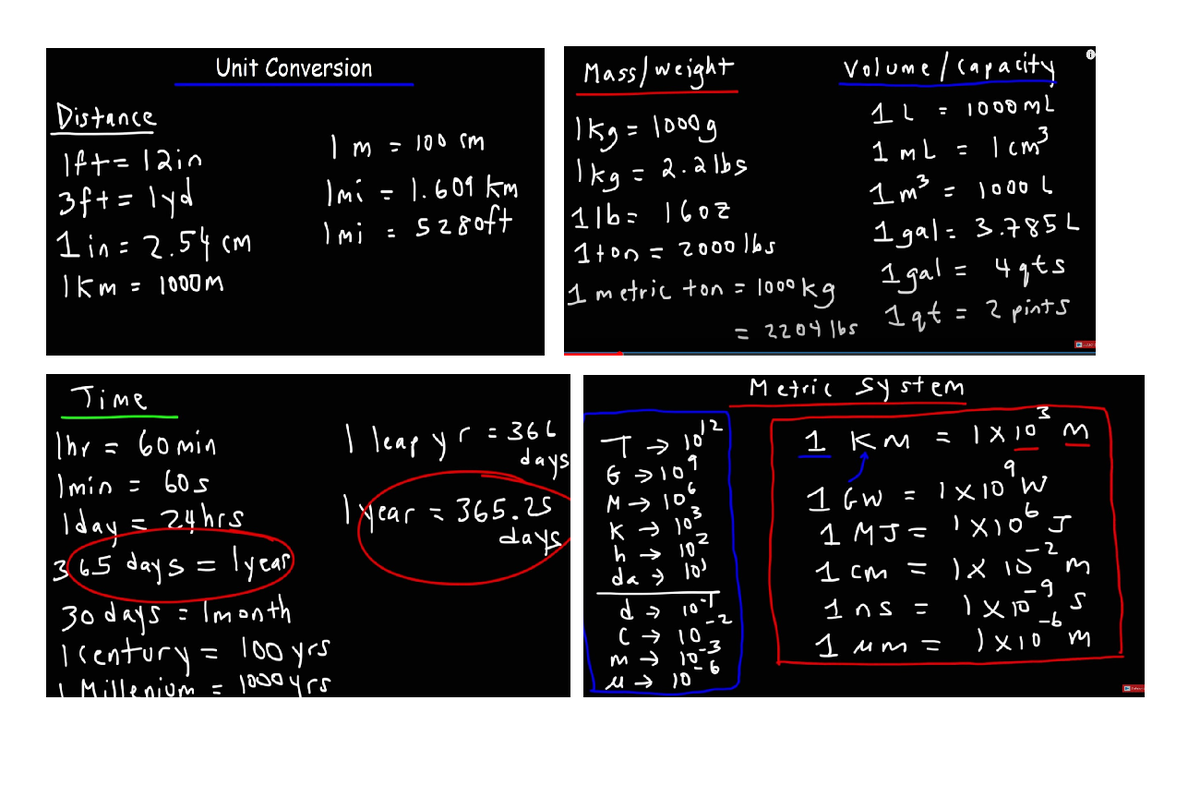 Unit Conversion
Distance
1ft = 12in
3ft = 1yd
1 in = 2.54 cm
1km = 1000m
1 m = 100 cm
1mi = 1.609 km
1mi = 5280ft
Mass/weight
1kg = 1000g
1kg = 2.2 lbs
1 lb = 16oz
1 ton = 2000 lbs
1 metric ton = 1000 kg
= 2204 lbs
Volume / capacity
1 L = 1000 mL
1 mL = 1 cm³
1 m³ = 1000 L
1 gal = 3.785 L
1 gal = 4 qts
1 qt = 2 pints
Time
1hr = 60 min
1min = 60s
1day = 24 hrs
365 days = 1year
30 days = 1month
1 century = 100 yrs
1 Millenium = 1000 yrs
1 leap yr = 366
days
1 year = 365.25
days
Metric System
T → 10¹²
G → 10⁹
M → 10⁶
K → 10³
h → 10²
da → 10¹
d → 10⁻¹
c → 10⁻²
m → 10⁻³
μ → 10⁻⁶
1 KM = 1 × 10³ m
1 GW = 1 × 10⁹ W
1 MJ = 1 × 10⁶ J
1 cm = 1 × 10⁻² m
1 ns = 1 × 10⁻⁹ s
1 μm = 1 × 10⁻⁶ m